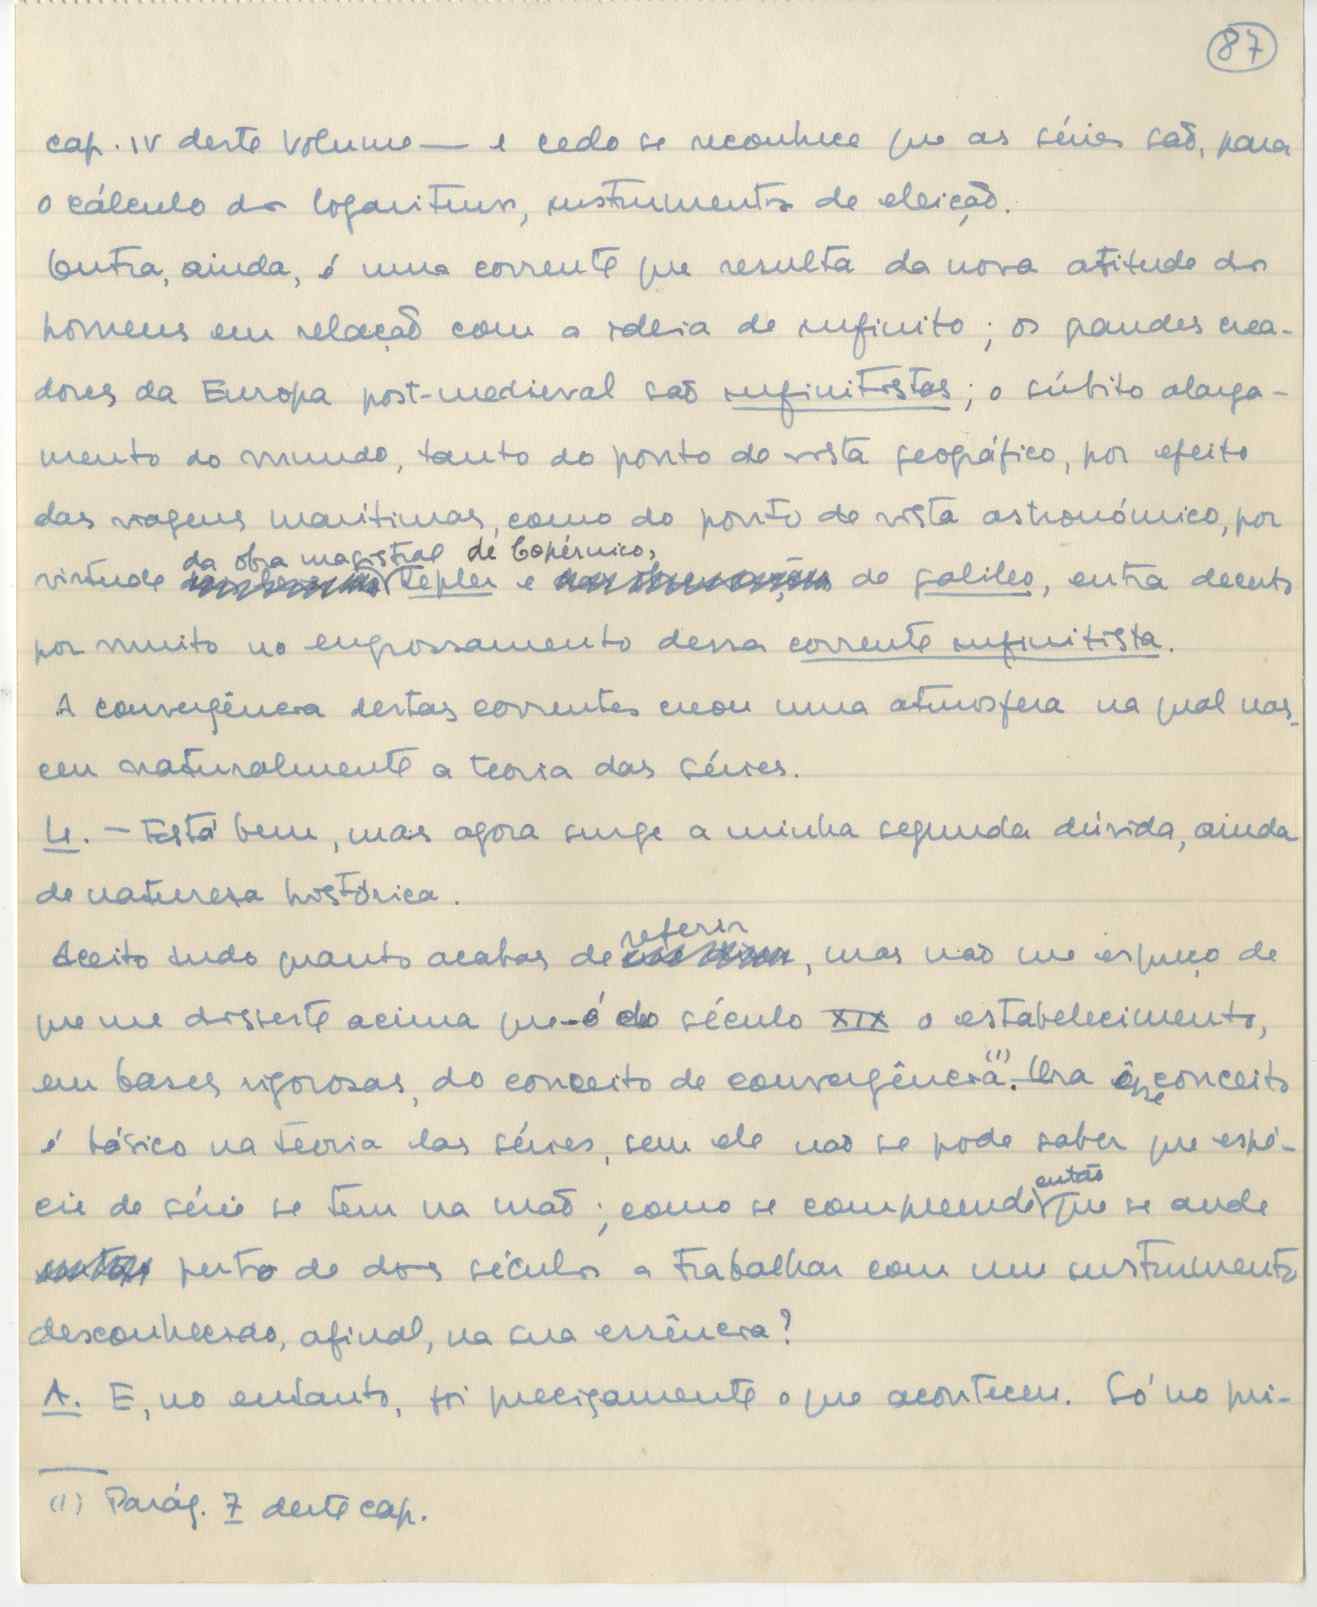 87
cap. IV deste volume — e cedo se reconhece que as séries são, para
o cálculo dos logaritmos, instrumentos de eleição.
Outra, ainda, é uma corrente que resulta da nova atitude dos
homens em relação com a ideia de infinito; os grandes crea-
dores da Europa post-medieval são infinitistas; o súbito alarga-
mento do mundo, tanto do ponto de vista geográfico, por efeito
das viagens marítimas, como do ponto de vista astronómico, por
da obra magistral de Copérnico,
virtude Kepler e de Galileo, entra decerto
por muito no engrossamento dessa corrente infinitista.
A convergência destas correntes creou uma atmosfera na qual nas-
ceu naturalmente a teoria das séries.
L. — Está bem, mas agora surge a minha segunda dúvida, ainda
de natureza histórica.
referir
Aceito tudo quanto acabas de , mas não me esqueço de
que me disseste acima que é do século XIX o estabelecimento,
em bases rigorosas, do conceito de convergência(1). Ora esse conceito
é básico na teoria das séries, sem ele não se pode saber que espé-
então
cie de série se tem na mão; como se compreende que se ande
perto de dois séculos a trabalhar com um instrumento
desconhecido, afinal, na sua essência?
A. E, no entanto, foi precisamente o que aconteceu. Só no pri-
(1) Parág. 7 deste cap.